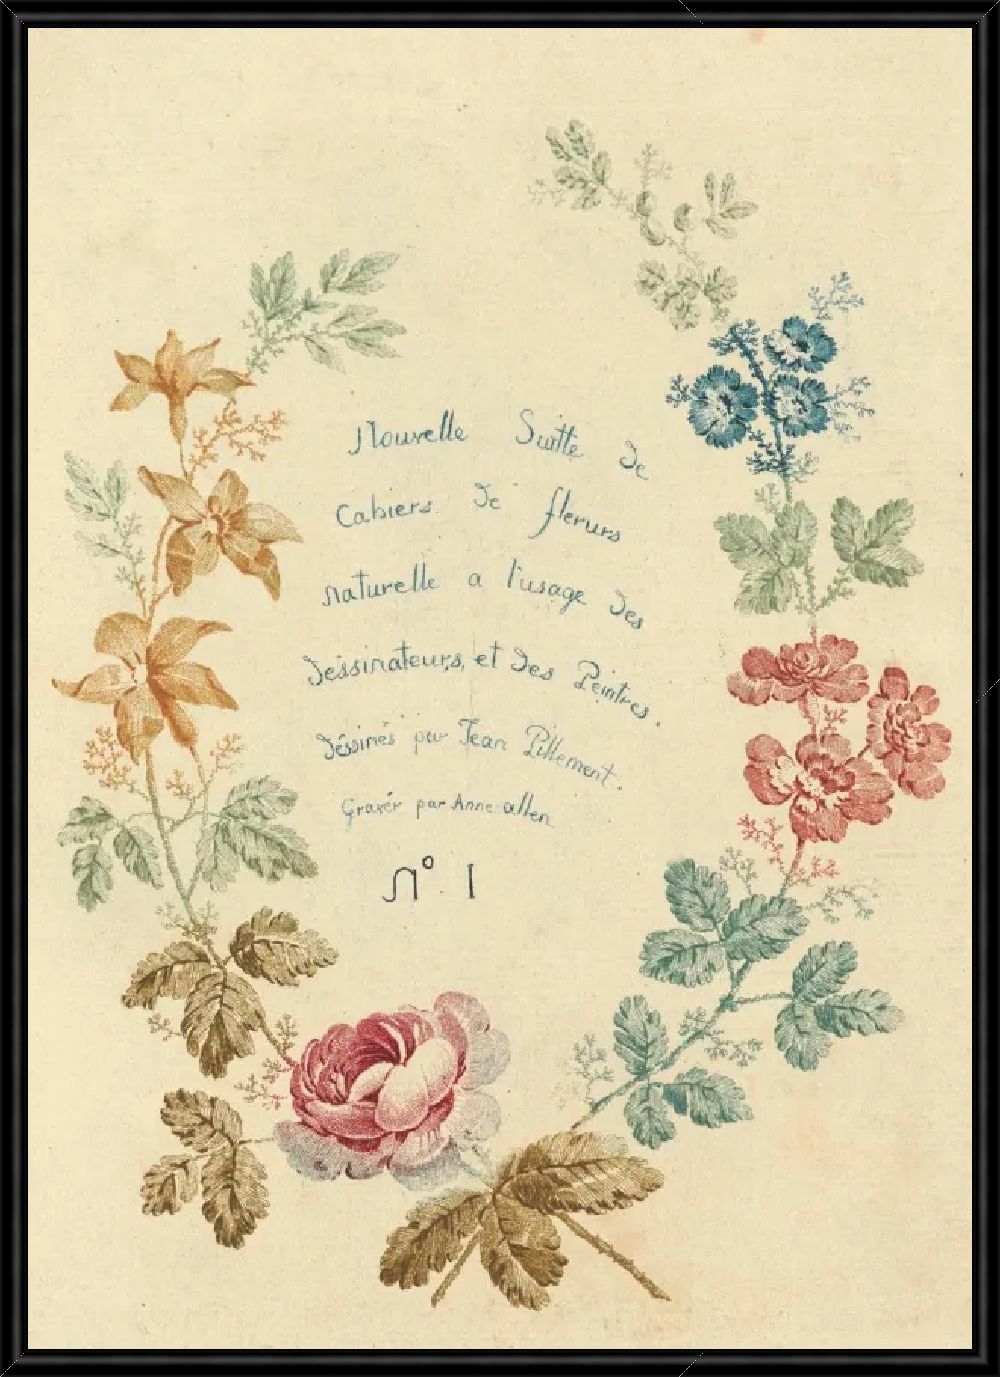 Nouvelle Suitte de
Cahiers de fleurs
naturelle a l'usage des
dessinateurs, et des Peintres.
déssinés par Jean Pillement.
Gravér par Anne allen
No. 1